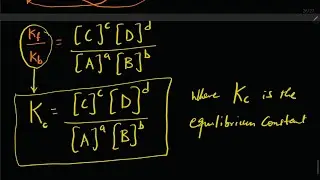 Kf/Kb = [C]^c [D]^d / [A]^a [B]^b
Kc = [C]^c [D]^d / [A]^a [B]^b
Where Kc is the
equilibrium constant